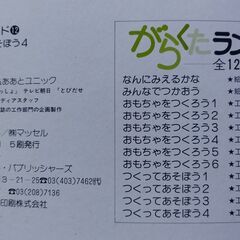 ド⑫
そぼう4
ああとユニック
っしょ」 テレビ朝日 「とびだせ
ディアスタッフ
誌の工作部門の企画製作
/㈱マッセル
5刷発行
・パブリッシャーズ
3-21-25 ☎03(403)7462㈹
☎03(208)7136
印刷株式会社
がらくたラン
全12
なんにみえるかな
みんなでつかおう
おもちゃをつくろう1
おもちゃをつくろう2
おもちゃをつくろう3
おもちゃをつくろう4
おもちゃをつくろう5
おもちゃをつくろう6
つくってあそぼう1
つくってあそぼう2
つくってあそぼう3
つくってあそぼう4